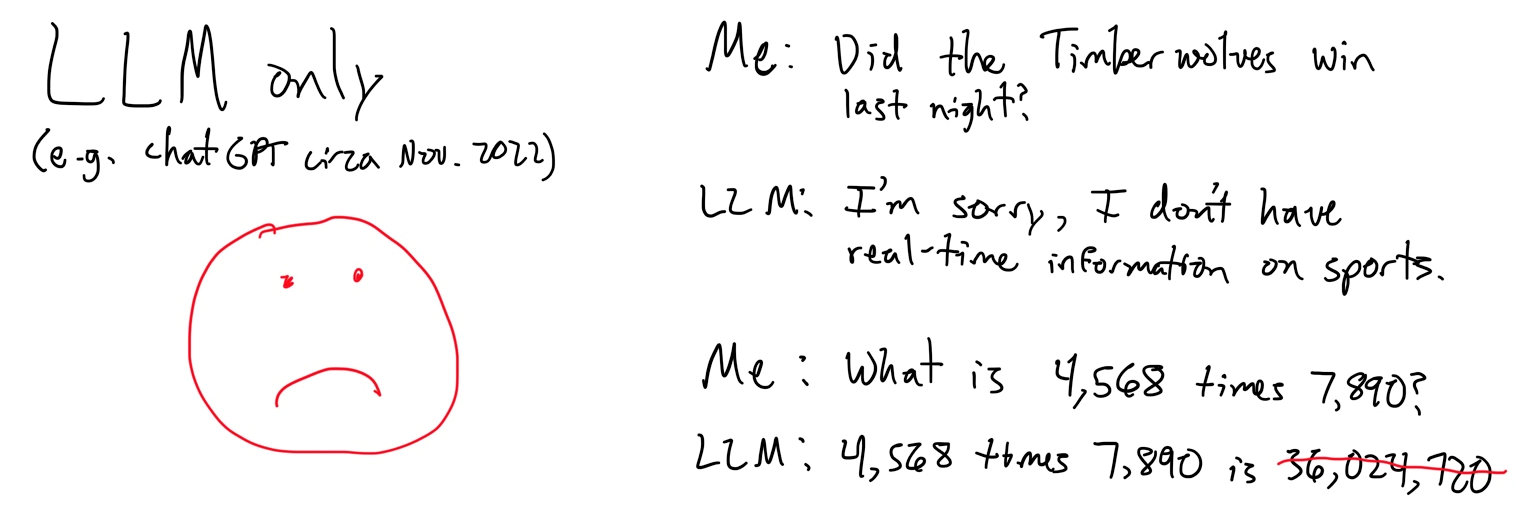 LLM only
(e.g. chat GPT circa Nov. 2022)
Me: Did the Timberwolves win
last night?
LLM: I'm sorry, I don't have
real-time information on sports.
Me: What is 4,568 times 7,890?
LLM: 4,568 times 7,890 is 36,024,720